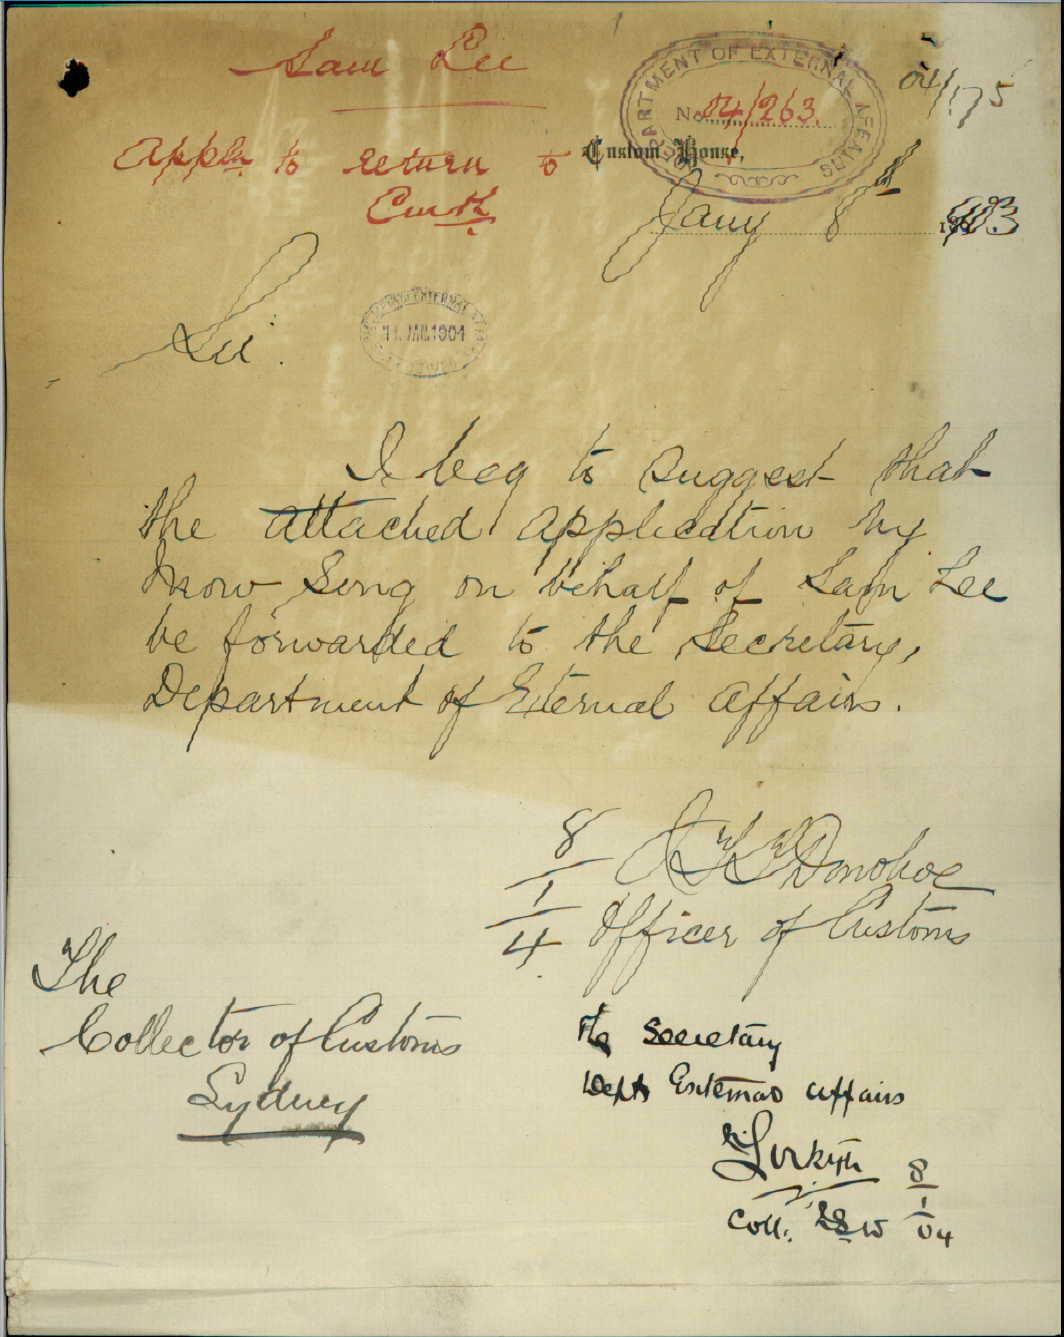 Sam Lee
04/175
DEPARTMENT OF EXTERNAL AFFAIRS
No. 04/263.
Appln to return to
C'wth
Custom House,
Jany 8th 1903
Sir.
11. JAN. 1904
I beg to suggest that
the attached application by
Mow Song on behalf of Sam Lee
be forwarded to the Secretary,
Department of External Affairs.
8/1/4
Donohoe
Officer of Customs
The
Collector of Customs
Sydney
The Secretary
Dept External Affairs
Coll. NSW
8/1/04